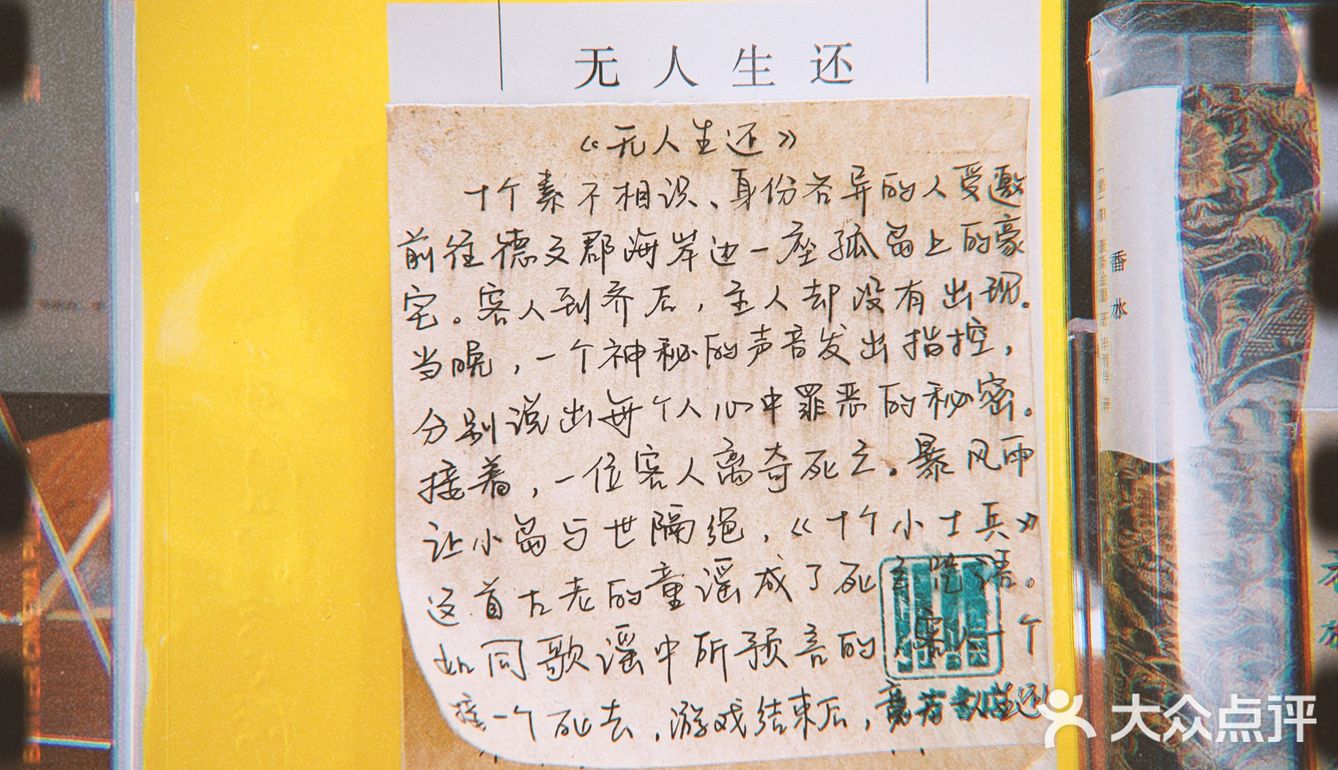 无人生还
《无人生还》
十个素不相识、身份各异的人受邀
前往德文郡海岸边一座孤岛上的豪
宅。客人到齐后，主人却没有出现。
当晚，一个神秘的声音发出指控，
分别说出每个人心中罪恶的秘密。
接着，一位客人离奇死亡。暴风雨
让小岛与世隔绝，《十个小士兵》
这首古老的童谣成了死亡咒语。
如同歌谣中所预言的，客人一个
接一个死去，游戏结束后，竟无人生还！
香水
大众点评